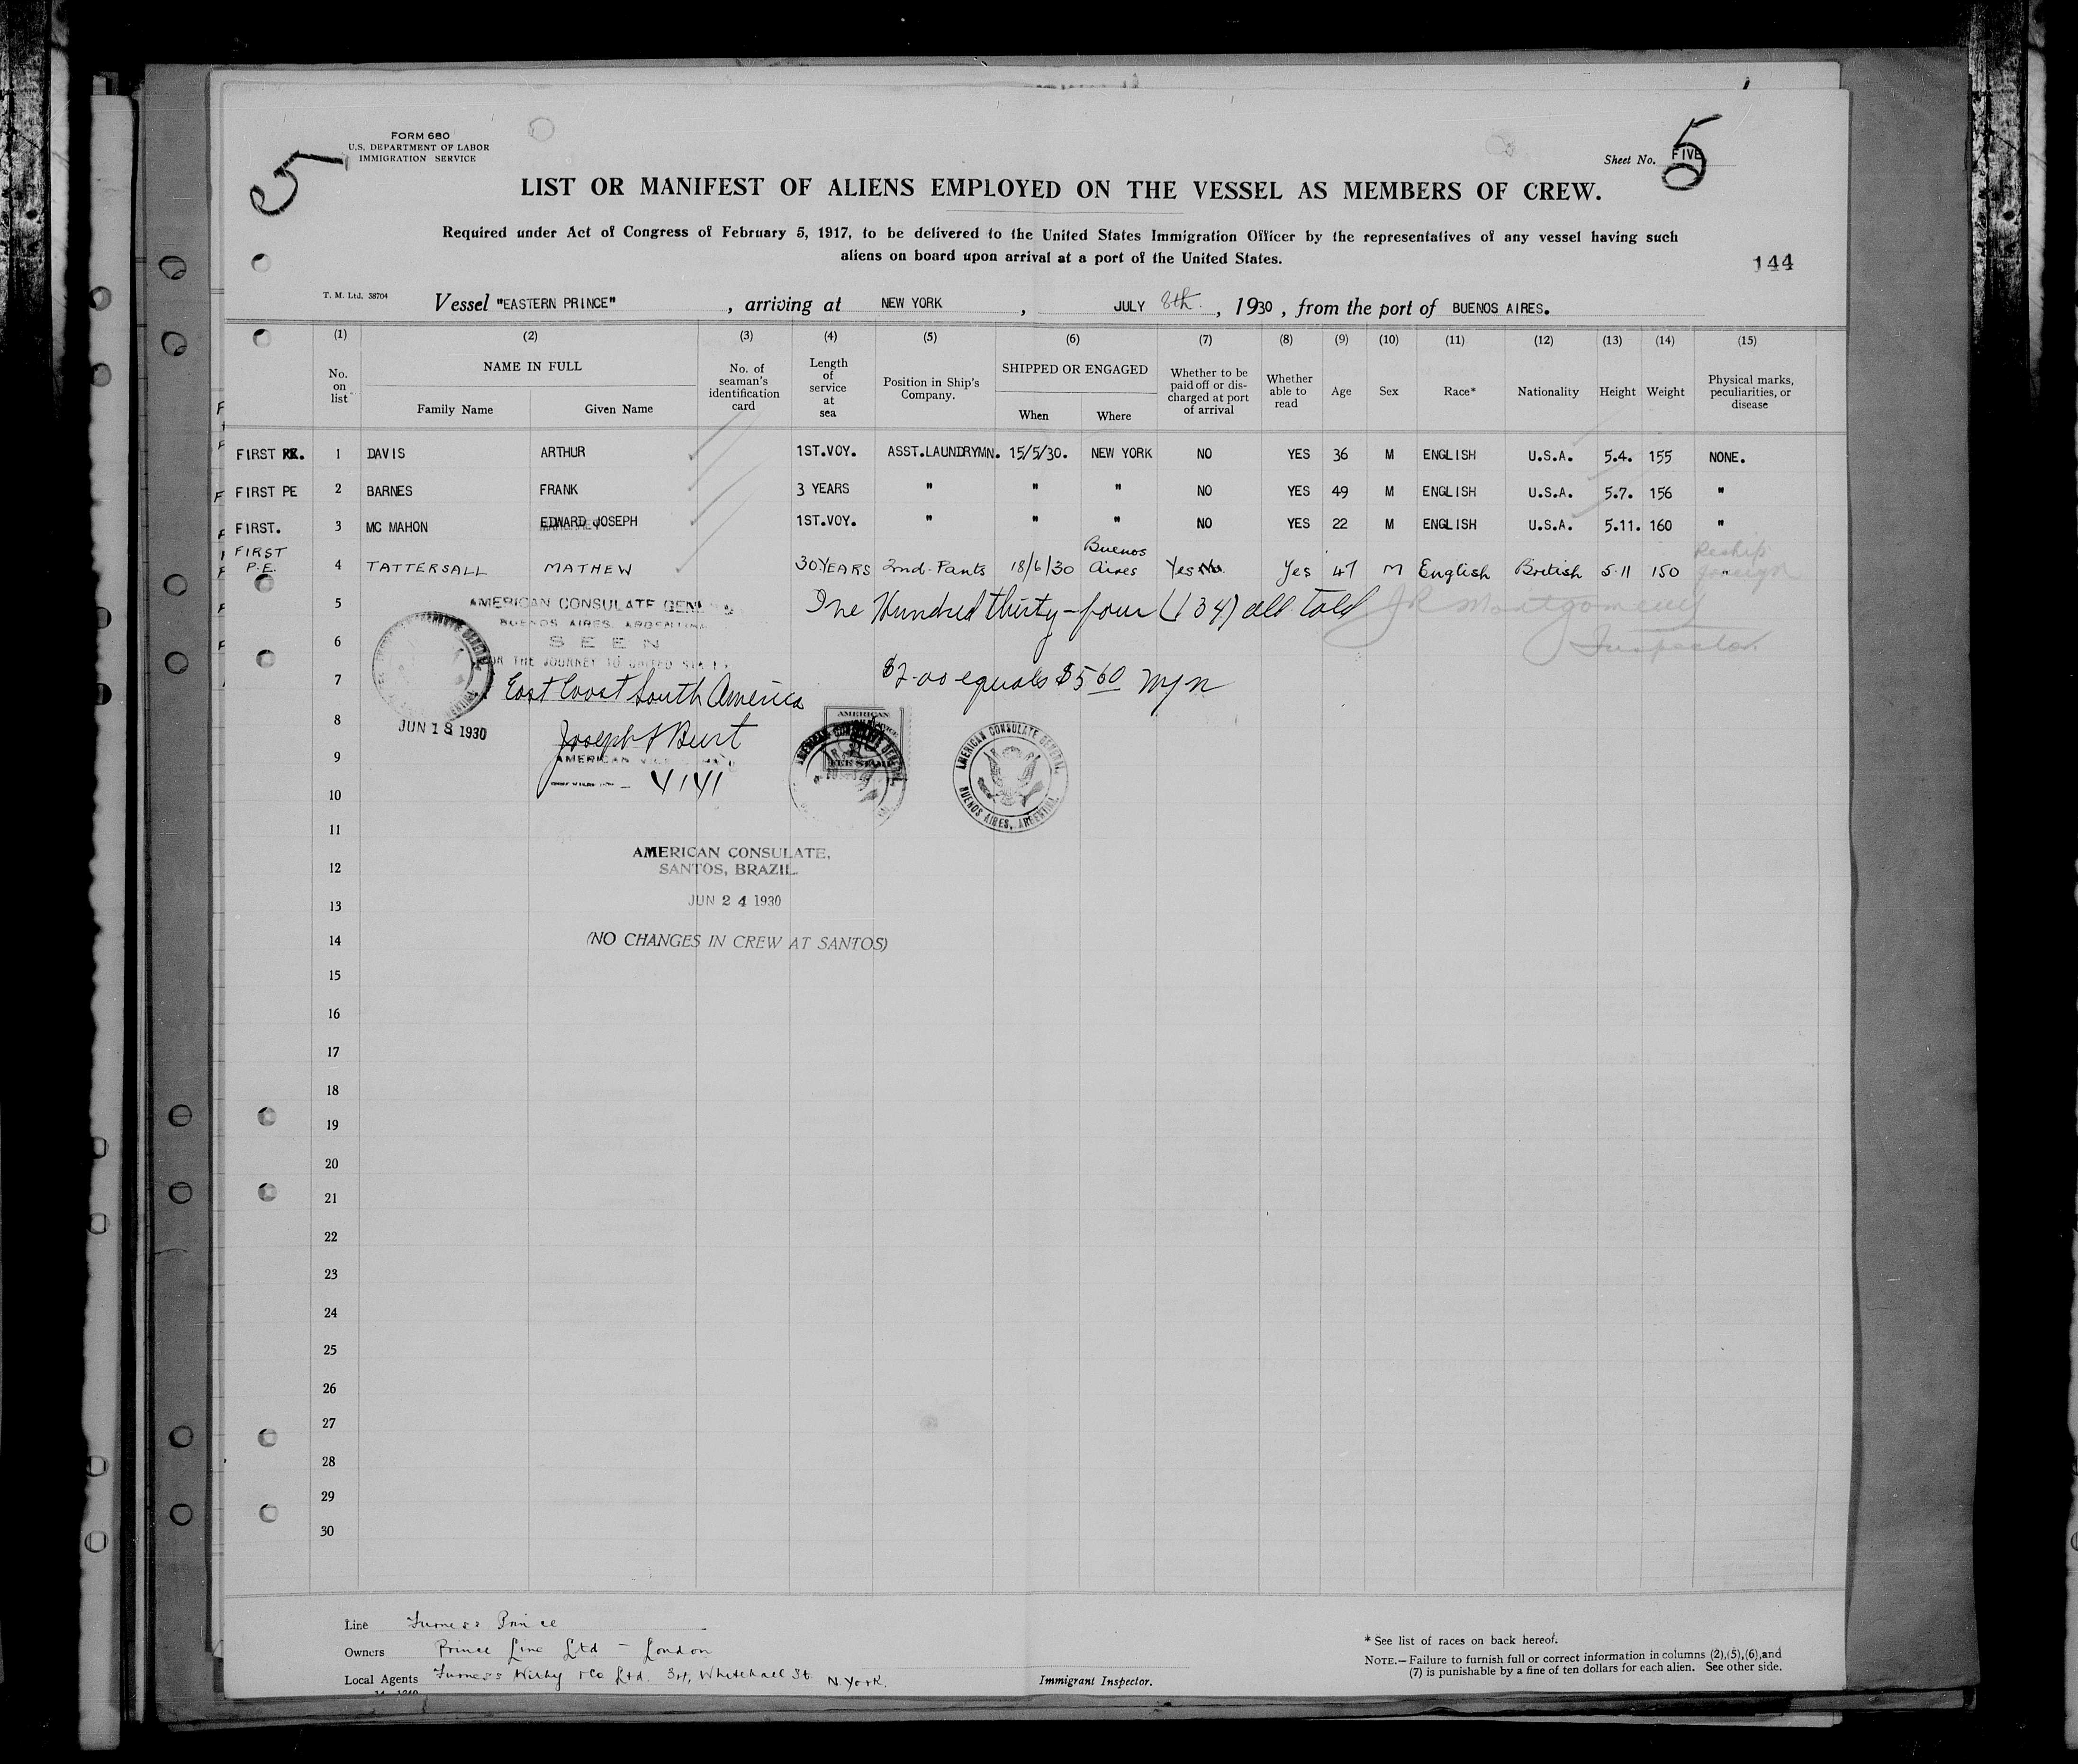 FORM 680
U.S. DEPARTMENT OF LABOR
IMMIGRATION SERVICE
5
Sheet No. FIVE
5
LIST OR MANIFEST OF ALIENS EMPLOYED ON THE VESSEL AS MEMBERS OF CREW.
Required under Act of Congress of February 5, 1917, to be delivered to the United States Immigration Officer by the representatives of any vessel having such
aliens on board upon arrival at a port of the United States.
144
T. M. Ltd. 38704
Vessel "EASTERN PRINCE" , arriving at NEW YORK , JULY 8th. , 1930 , from the port of BUENOS AIRES.
(1) (2) (3) (4) (5) (6) (7) (8) (9) (10) (11) (12) (13) (14) (15)
No. on list
NAME IN FULL
Family Name Given Name
No. of seaman's identification card
Length of service at sea
Position in Ship's Company.
SHIPPED OR ENGAGED
When Where
Whether to be paid off or dis-charged at port of arrival
Whether able to read
Age
Sex
Race*
Nationality
Height
Weight
Physical marks, peculiarities, or disease
FIRST 1 DAVIS ARTHUR 1ST.VOY. ASST.LAUNDRYMN. 15/5/30. NEW YORK NO YES 36 M ENGLISH U.S.A. 5.4. 155 NONE.
FIRST PE 2 BARNES FRANK 3 YEARS " " " NO YES 49 M ENGLISH U.S.A. 5.7. 156 "
FIRST. 3 MC MAHON EDWARD JOSEPH 1ST.VOY. " " " NO YES 22 M ENGLISH U.S.A. 5.11. 160 "
FIRST P.E. 4 TATTERSALL MATHEW 30 YEARS 2nd. Pants 18/6/30 Buenos Aires Yes No. Yes 47 M English British 5.11 150 "
Reship foreign
5
AMERICAN CONSULATE GENERAL
BUENOS AIRES, ARGENTINA
One Hundred thirty-four (134) all told
J R Montgomery
Inspector.
6
SEEN
FOR THE JOURNEY TO UNITED STATES
7
East Coast South America
$2.00 equals $5.60 m/n
8
JUN 18 1930
Joseph Burt
AMERICAN
9
AMERICAN VICE
4141
AMERICAN CONSULATE GENERAL
FEE STAMP
AMERICAN CONSULATE GENERAL,
BUENOS AIRES, ARGENTINA.
10
11
AMERICAN CONSULATE,
12
SANTOS, BRAZIL.
13
JUN 24 1930
14
(NO CHANGES IN CREW AT SANTOS)
15
16
17
18
19
20
21
22
23
24
25
26
27
28
29
30
Line Furness Prince
Owners Prince Line Ltd - London
Local Agents Furness Withy & Co Ltd. 34, Whitehall St. N. York.
Immigrant Inspector.
* See list of races on back hereof.
NOTE.—Failure to furnish full or correct information in columns (2),(5),(6),and
(7) is punishable by a fine of ten dollars for each alien. See other side.